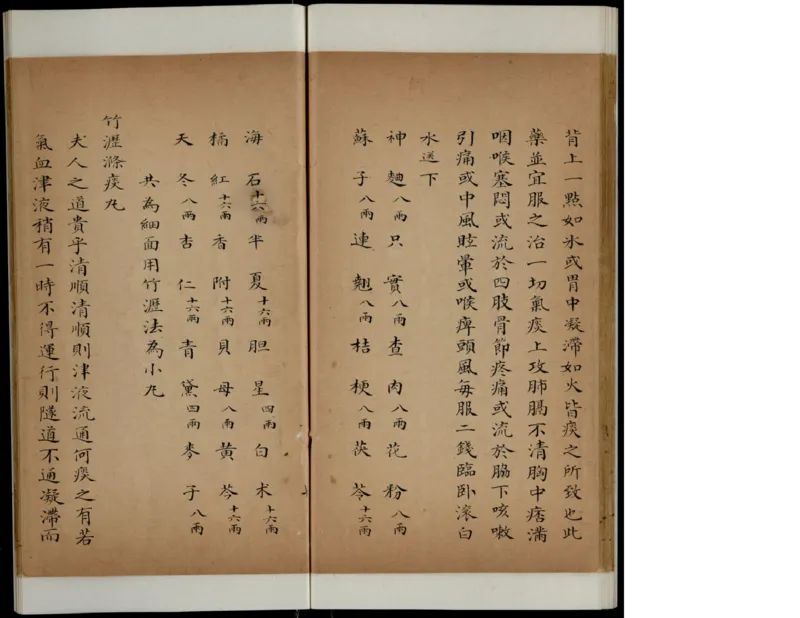 背上一點如氷或胃中凝滯如火皆痰之所致也此
藥並宜服之治一切氣痰上攻肺膓不清胸中痞滿
咽喉塞悶或流於四肢骨節疼痛或流於脇下咳嗽
引痛或中風眩暈或喉痺頭風每服二錢臨卧滾白
水送下
神麯八兩只實八兩查肉八兩花粉八兩
蘇子八兩連翹八兩桔梗八兩茯苓十六兩
海石十六兩半夏十六兩胆星四兩白术十六兩
橘紅十六兩香附十六兩貝母八兩黃芩十六兩
天冬八兩杏仁十六兩青黛四兩麥子八兩
共為細面用竹瀝法為小丸
竹瀝滌痰丸
夫人之道貴乎清順清順則津液流通何痰之有若
氣血津液稍有一時不得運行則隧道不通凝滯而